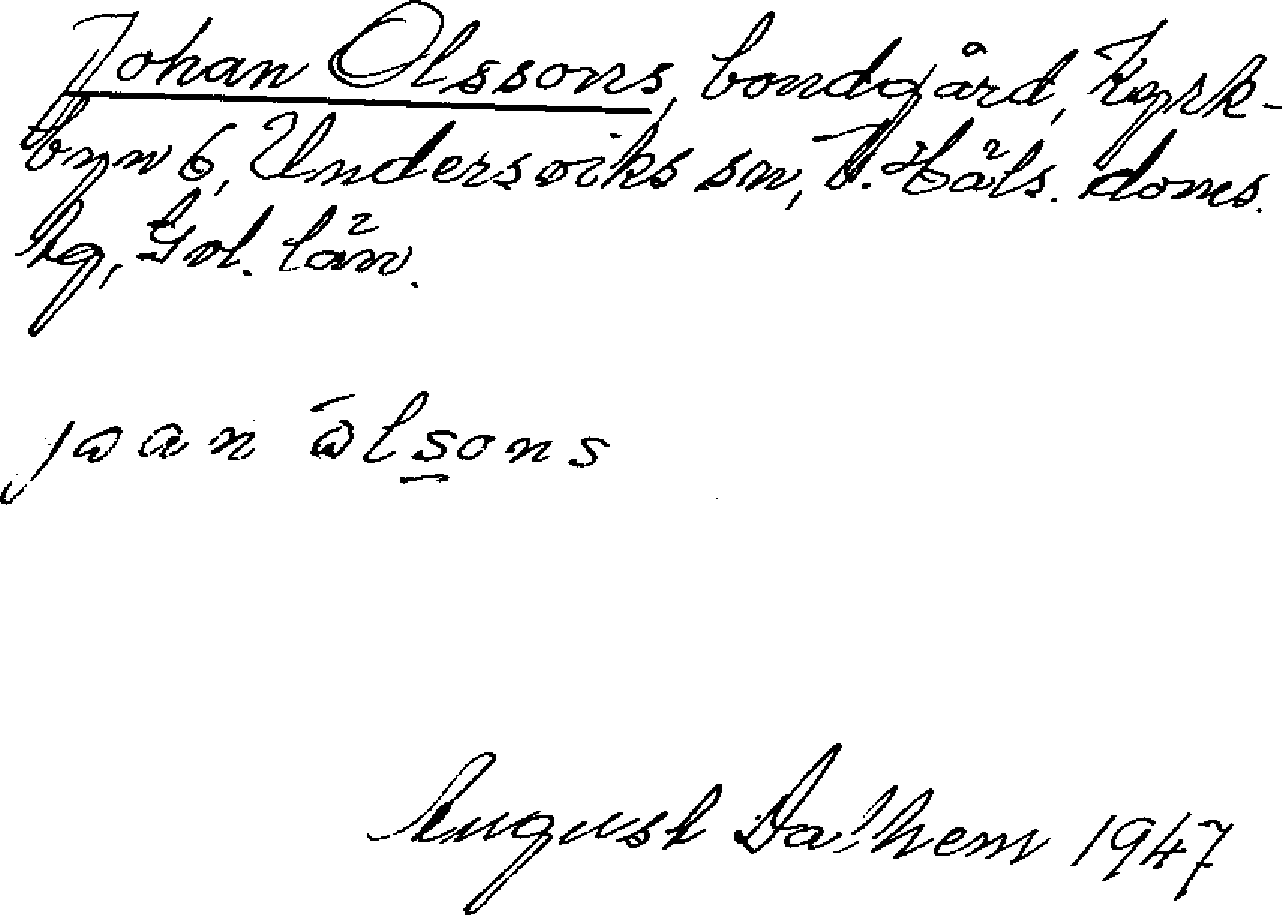 Johan Olssons, bondgård, Kyrk-
byn 6, Undersviks sn, V. Häls. doms.
hg, Gvl. län.
jɷan ɷ̄lsons
August Dalhem 1947